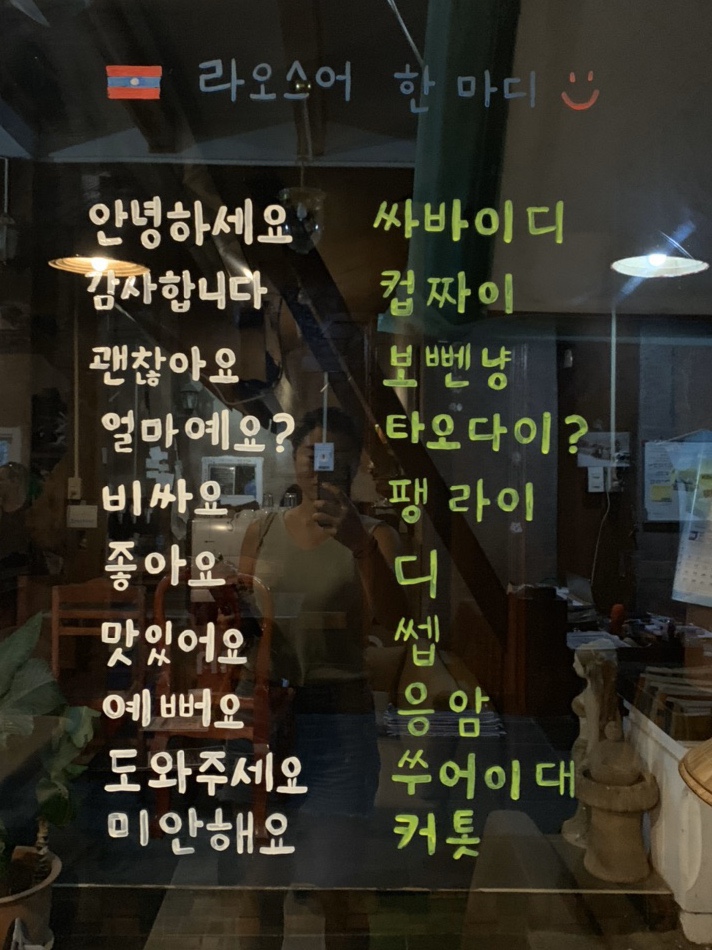 라오스어 한 마디
안녕하세요 싸바이디
감사합니다 컵 짜이
괜찮아요 보 뻰 냥
얼마예요? 타오다이?
비싸요 팽 라이
좋아요 디
맛있어요 쎕
예뻐요 응 암
도와주세요 쑤어이 대
미안해요 커톳